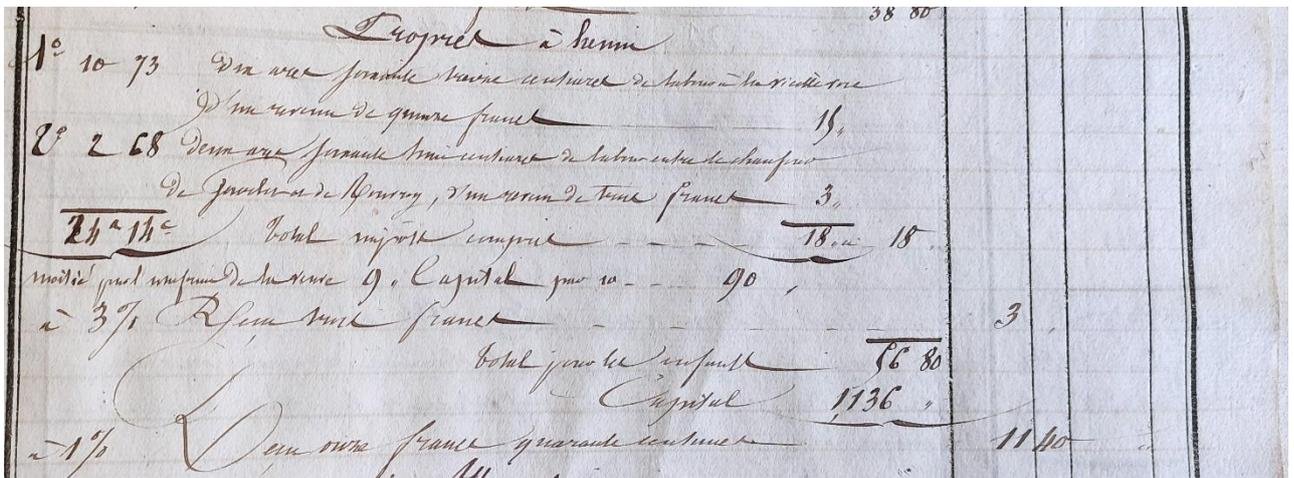 38 80
Propres à henin
1° 10 73 Dix ares soixante treize centiares de labour à la vieille rue
D'un revenu de quinze francs 15"
2° 2 68 deux ares soixante huit centiares de labour entre le chemin
de et de Rouvroy, d'un revenu de trois francs 3"
24a 14c total impôt compris 18 " 18
moitié pour l'usufruit de la veuve 9 " Capital par 10 90 "
à 3% Reçu trois francs 3 "
total pour les enfants 56 80
Capital 1136 "
à 1% Reçu onze francs quarante centimes 11 40 "